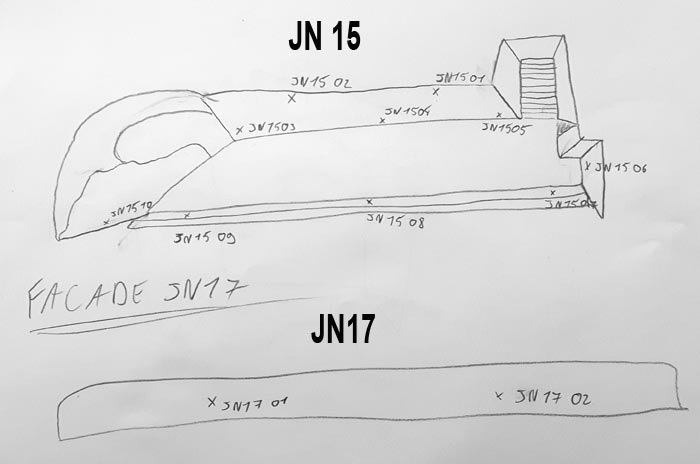 JN 15
JN15 02
JN1501
JN1503
JN1504
JN1505
JN15 06
JN1510
JN1507
JN15 08
JN15 09
FACADE JN17
JN17
JN17 01
JN 17 02